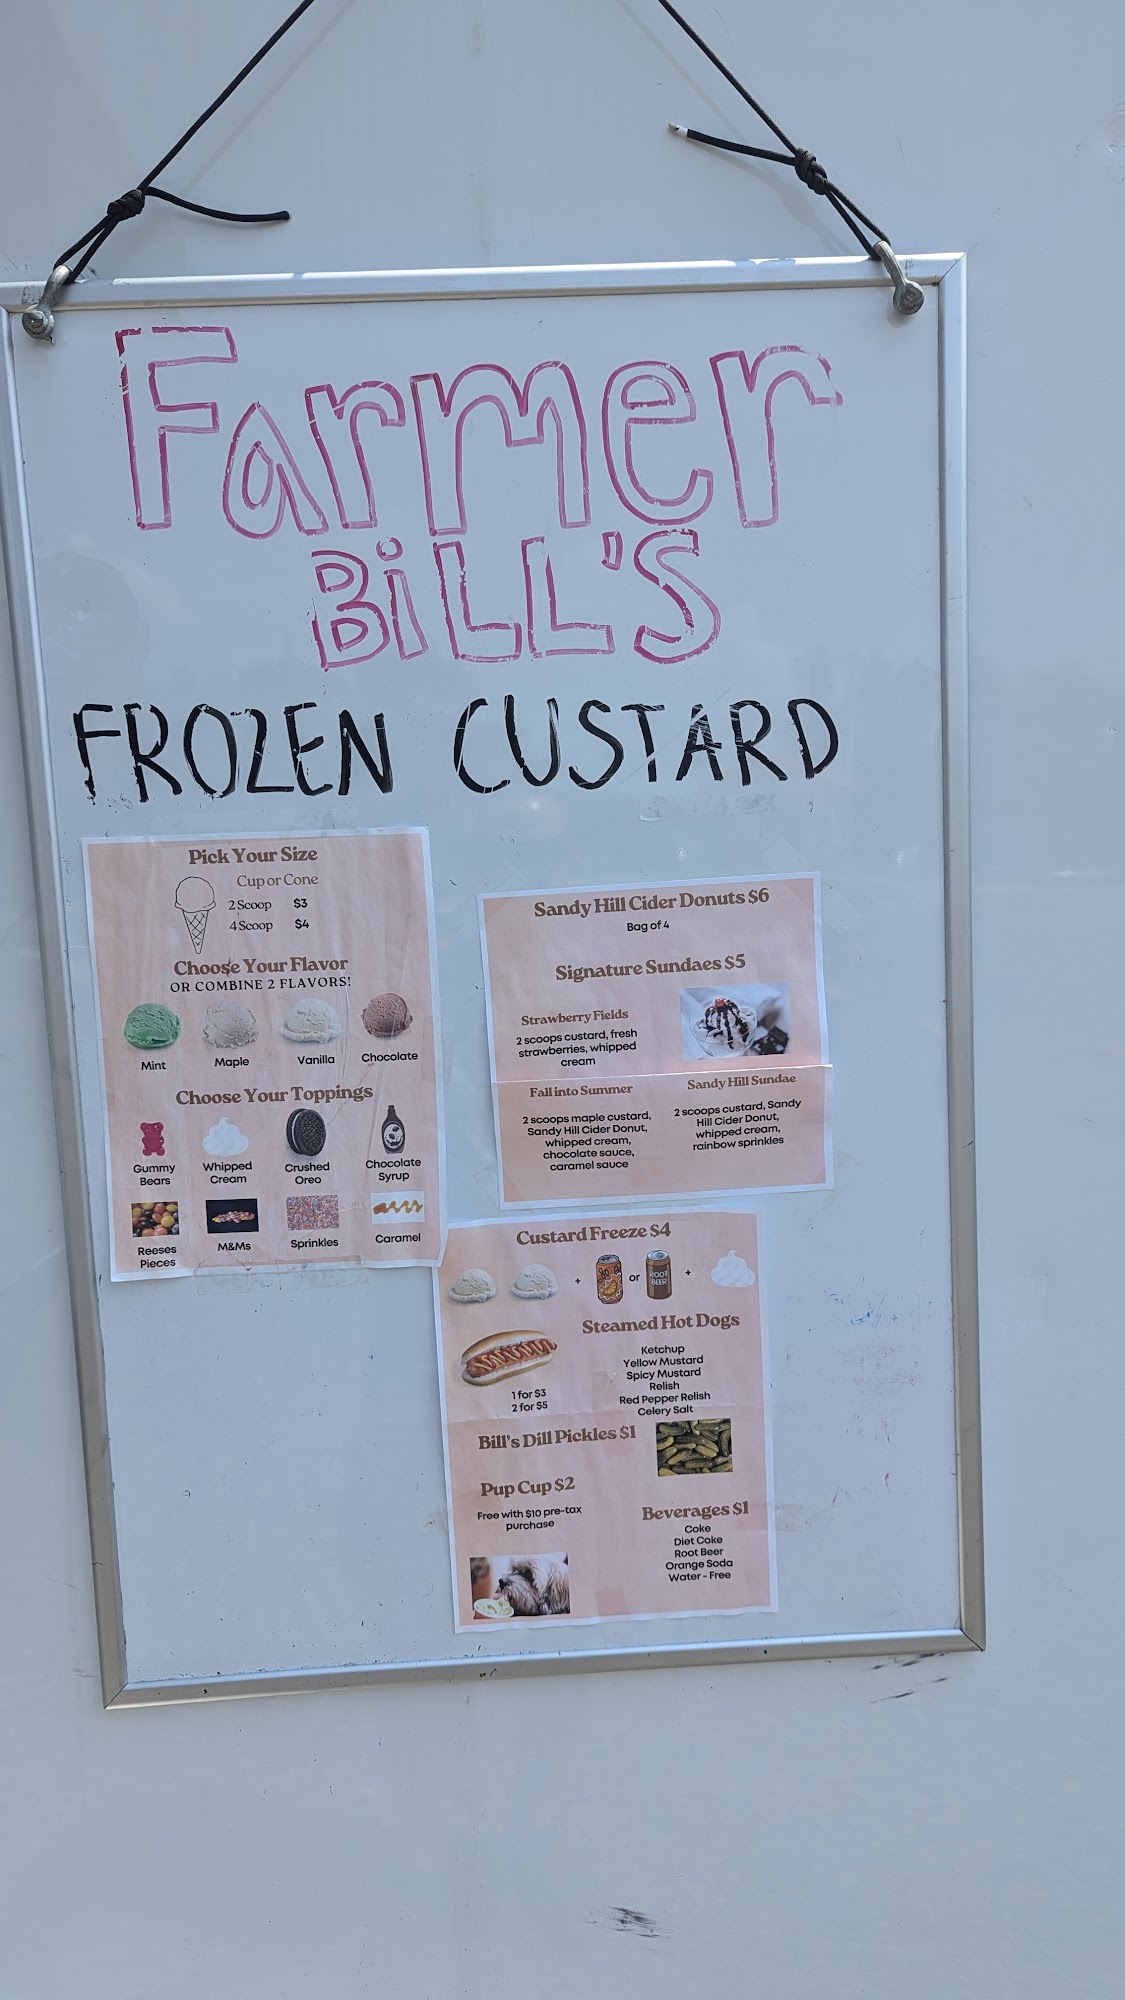 Farmer
BiLL'S
FROZEN CUSTARD
Pick Your Size
Cup or Cone
2 Scoop $3
4 Scoop $4
Choose Your Flavor
OR COMBINE 2 FLAVORS!
Mint Maple Vanilla Chocolate
Choose Your Toppings
Gummy Bears
Whipped Cream
Crushed Oreo
Chocolate Syrup
Reeses Pieces
M&Ms
Sprinkles
Caramel
Sandy Hill Cider Donuts $6
Bag of 4
Signature Sundaes $5
Strawberry Fields
2 scoops custard, fresh
strawberries, whipped
cream
Fall into Summer
2 scoops maple custard,
Sandy Hill Cider Donut,
whipped cream,
chocolate sauce,
caramel sauce
Sandy Hill Sundae
2 scoops custard, Sandy
Hill Cider Donut,
whipped cream,
rainbow sprinkles
Custard Freeze $4
+ or ROOT BEER +
Steamed Hot Dogs
1 for $3
2 for $5
Ketchup
Yellow Mustard
Spicy Mustard
Relish
Red Pepper Relish
Celery Salt
Bill's Dill Pickles $1
Pup Cup $2
Free with $10 pre-tax
purchase
Beverages $1
Coke
Diet Coke
Root Beer
Orange Soda
Water - Free